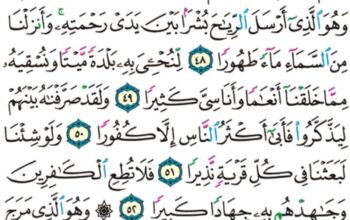 وَهُوَ ٱلَّذِىٓ أَرْسَلَ ٱلرِّيَٰحَ بُشْرًۢا بَيْنَ يَدَىْ رَحْمَتِهِۦ ۚ وَأَنزَلْنَا
مِنَ ٱلسَّمَآءِ مَآءً طَهُورًا ٤٨ لِّنُحْـِۧىَ بِهِۦ بَلْدَةً مَّيْتًا وَنُسْقِيَهُۥ
مِمَّا خَلَقْنَآ أَنْعَٰمًا وَأَنَاسِىَّ كَثِيرًا ٤٩ وَلَقَدْ صَرَّفْنَٰهُ بَيْنَهُمْ
لِيَذَّكَّرُوا۟ فَأَبَىٰٓ أَكْثَرُ ٱلنَّاسِ إِلَّا كُفُورًا ٥٠ وَلَوْ شِئْنَا
لَبَعَثْنَا فِى كُلِّ قَرْيَةٍ نَّذِيرًا ٥١ فَلَا تُطِعِ ٱلْكَٰفِرِينَ
وَجَٰهِدْهُم بِهِۦ جِهَادًا كَبِيرًا ٥٢ ۞ وَهُوَ ٱلَّذِى مَرَجَ